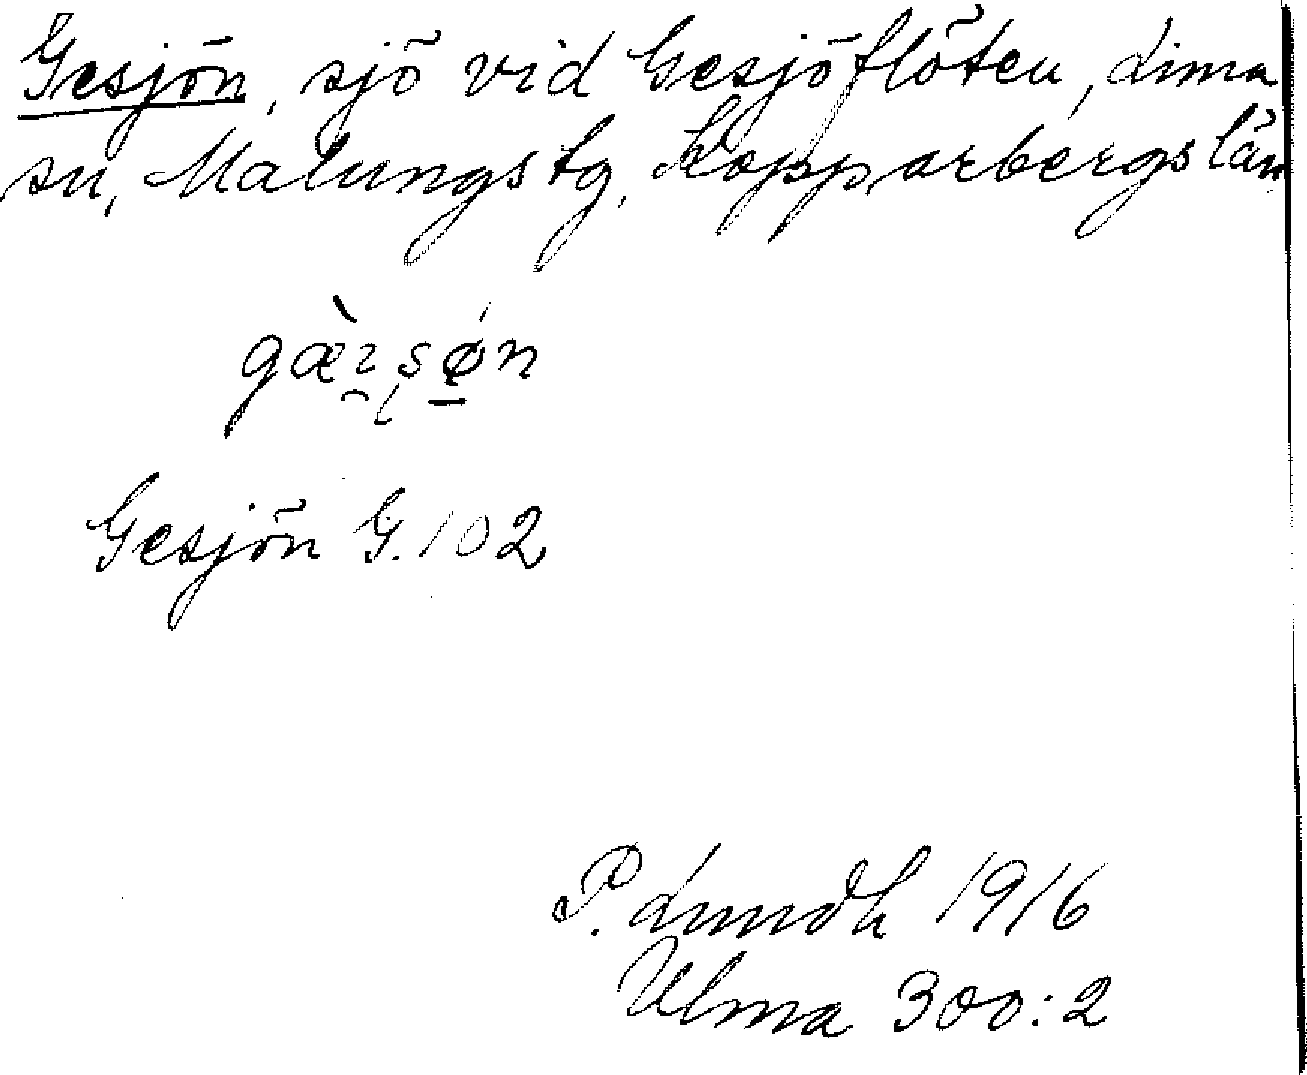 Gesjön, sjö vid Gesjöflöten, Lima
sn, Malungs tg, Kopparbergs län
Gesjön G. 102
P. Lundh 1916
Ulma 300:2